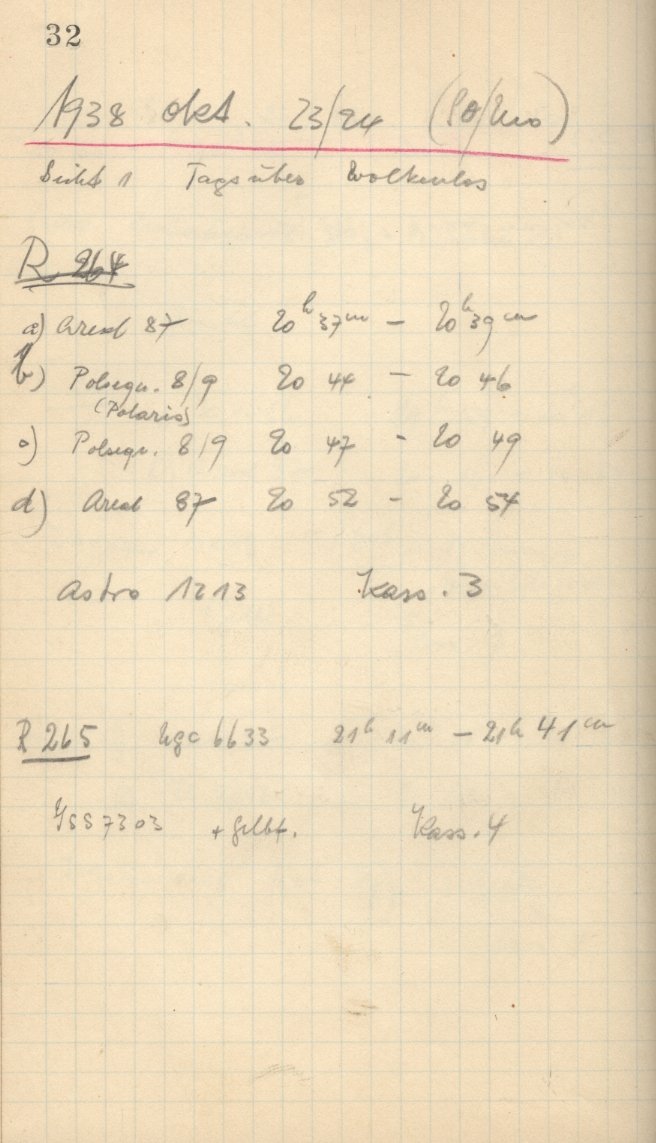 32
1938 Okt. 23/24 (So/Mo)
Sicht 1 Tagsüber Wolkenlos
R 264
a) Areal 87 20h 37m - 20h 39m
b) Polsequ. 8/9 20 44 - 20 46
(Polaris)
c) Polsequ. 8/9 20 47 - 20 49
d) Areal 87 20 52 - 20 54
Astro 1213 Kass. 3
R 265 Ngc 6633 21h 11m - 21h 41m
ISS 7303 + Gelbf. Kass. 4